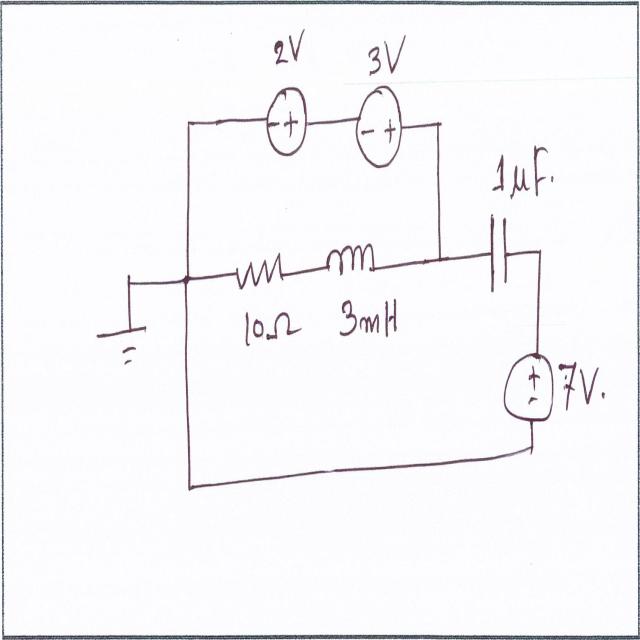 2V
3V
- +
- +
1μF.
10Ω
3mH
+
-
7V.